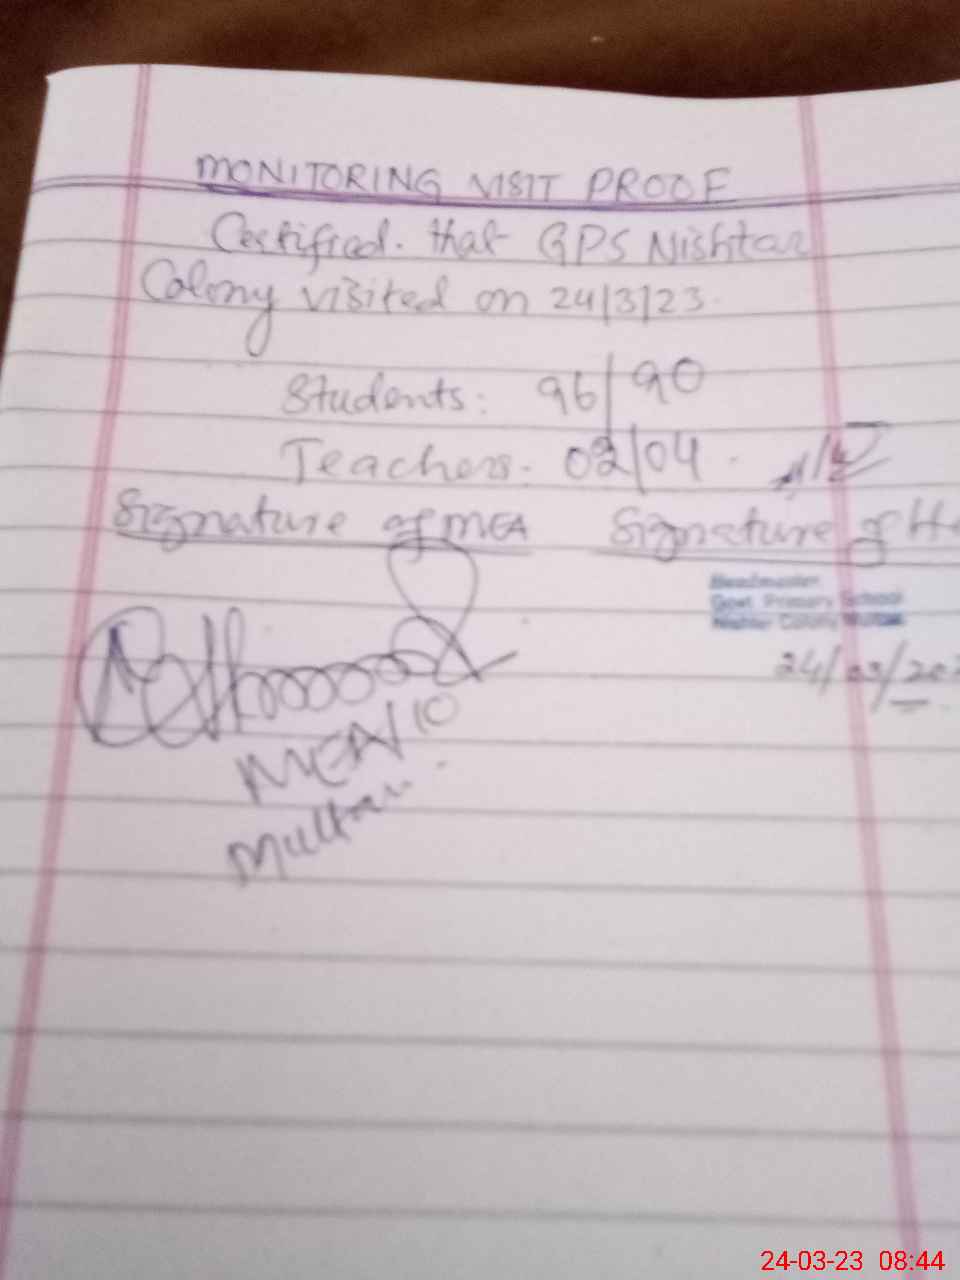 MONITORING VISIT PROOF
Certified. that GPS Nishtar
Colony visited on 24/3/23.
Students: 96/90
Teachers. 03/04
Signature of MEA Signature of H
Headmaster
Govt. Primary School
Nishtar Colony Multan
24/03/202
MEA/10
Multan
24-03-23 08:44